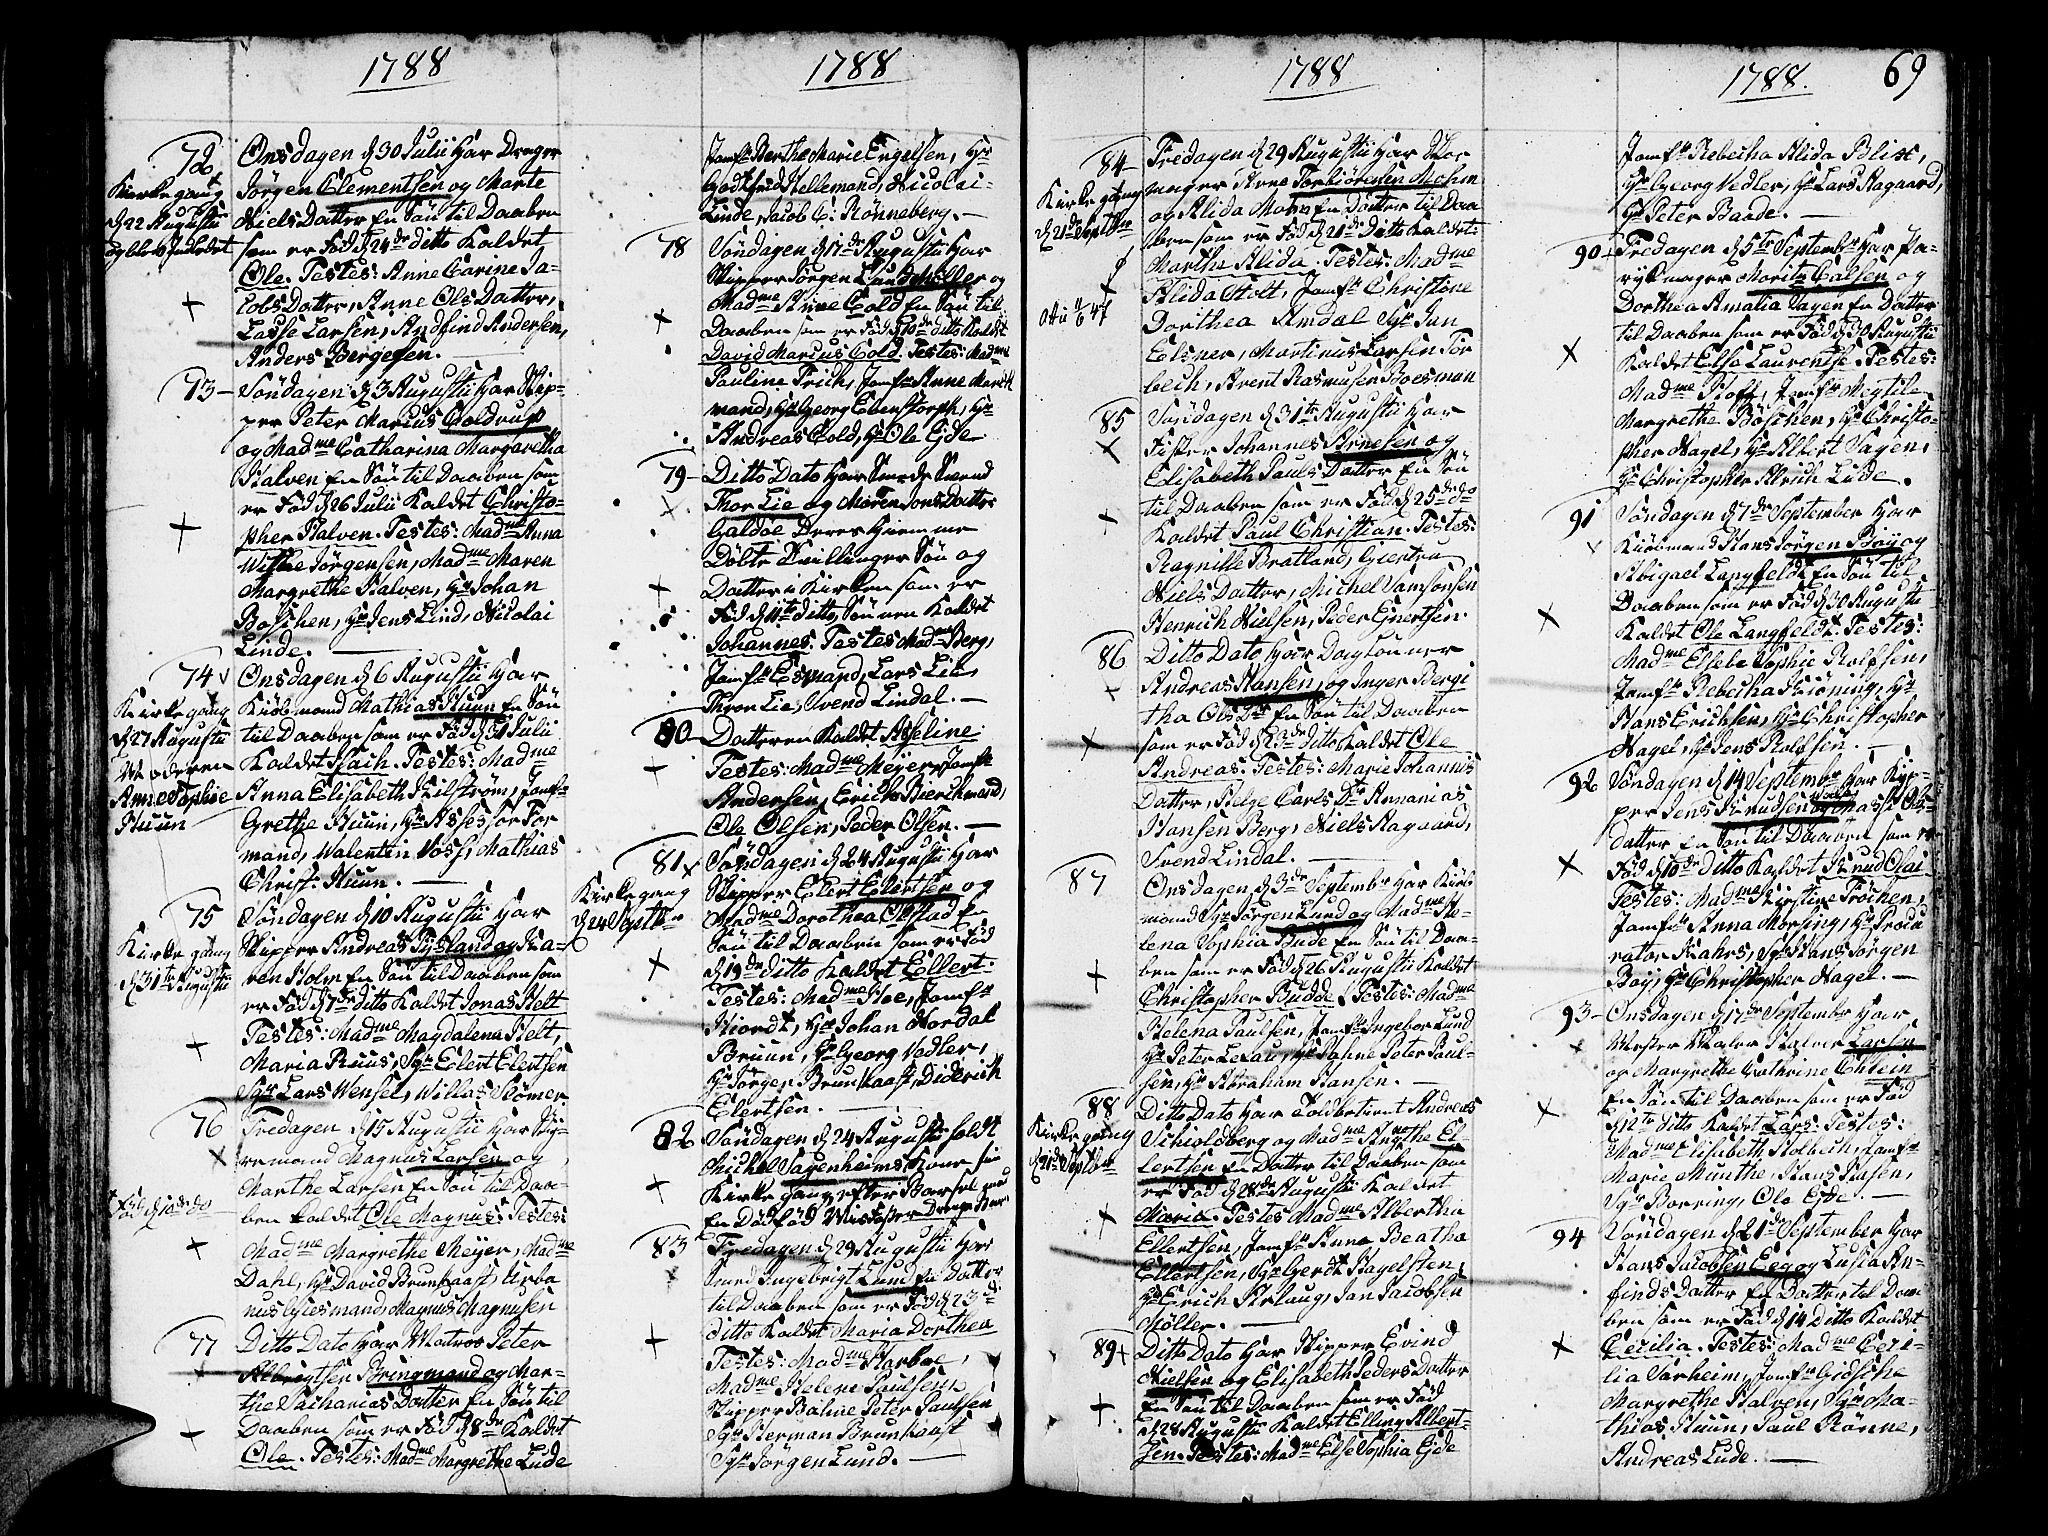 1788
72
Kirkegang
d 22 Augustii
og blev Indledet
Onsdagen d 30 Julii har Drager
Jörgen Clementsen og Marte
Niels Datter En Sön til Daaben
som er Föd d 24de ditto Kaldet
Ole. Testes: Anne Carine Ja-
cobs Datter, Anne Ols Datter,
Lasse Larsen, Andfind Andersen,
Anders Bergesen.
73-
Söndagen d 3 Augustii har Skip-
per Peter Marcus Coldrup
og Madme Catharina Margaretha
Halven En Sön til Daaben som
er Föd d 26 Julii Kaldet Christo-
pher Halven. Testes: Madme Anna
Jörgensen, Madme Maren
Margrethe Halven, Hr Johan
Böschen, Hr Jens Lind, Nicolai
Linde.
74
Kirkegang
d 27 Augustii
Moderen
Anne Sophie
Huun
Onsdagen d 6 Augustii har
Kiöbmand Mathias Huun En Sön
til Daaben som er Föd d 31 Julii
Kaldet Isach. Testes: Madme
Anna Elisabeth Kilström, Jomfr
Grethe Huun, Hr Assessor For
mand, Walentin Voss, Mathias
Christ: Huun.
75
Kirkegang
d 31te Augustii
Söndagen d 10 Augustii har
Skipper Andreas Tysland og Ka-
ren Holm En Sön til Daaben som
er Föd d 7de ditto Kaldet Jonas Helt
Testes: Madme Magdalena Helt,
Maria Ruus, Sgr Elert Elertsen
Sgr Lars Wensel, Willas Römer
76
Föd d 10de do
Fredagen d 15 Augustii har Sty-
remand Magnus Larsen og
Marthe Larsen En Sön til Daa-
ben kaldet Ole Magnus. Testes:
Madme Margrethe Meyer, Madme
Dahl, Hr David Brunkaast, Urba
nus Giesmand, Magnus Magnusen
77
Ditto Dato har Matros Peter
Albrigtsen Bringmand og Mar-
the Sachanias Datter En Sön til
Daaben som er Föd d 8de Kaldet
Ole. Testes: Madme Margrethe Lude
1788
Jomfr Berthe Marie Engelsen, Hr
Godtfried Hellemand, Nicolai
Linde, Jacob C: Rönneberg.
78
Söndagen d 17de Augustii har
Skipper Jörgen Lund Möller og
Madme Anne Cold En Sön til
Daaben som er Föd d 10de ditto Kaldet
David Marcus Cold. Testes: Madme
Pauline Frich, Jomfr Anne Marith
mand, Hr Georg Ebenstorph, Hr
Andreas Cold, Hr Ole Gde
79-
Ditto Dato har Smede Svend
Thor Lie og Maren Jons Datter
Galdöe Deres Hiemme
Döbte Tvillinger Sön og
Datter i Kirken som er
Föd d 11te ditto Sönnen Kaldet
Johannes. Testes Madme Berg,
Jomfr Esmand, Lars Lie,
Thron Lie, Svend Lindal.
80-
Datteren Kaldet Asseline
Testes: Madme Meyer, Jomfr
Andersen, Erich Bierchmand,
Ole Olsen, Peder Olsen.
81
Kirkegang
d 24 Septbr
Söndagen d 24 Augustii har
Skipper Elert Elertsen og
Madme Dorothea Olstad En
Sön til Daaben som er Föd
d 19de ditto Kaldet Ellert:
Testes: Madme Hoe, Jomfr
Hiordt, Hr Johan Nordal
Bruun, Hr Georg Vedler,
Hr Jörgen Brunkaast, Diderich
Elertsen.
82
Söndagen d 24 Augustii holdt
Michel Sagenheims Kone sin
Kirkegang efter Barsel med
En Dödföd
83
Fredagen d 29 Augustii har
Smed Ingebrigt Lund En Datter
til Daaben som er Föd d 23de
ditto Kaldet Maria Dorthea
Testes: Madme Harboe,
Madme Helene Paulsen,
Skipper Bahne Peter Paulsen
Sgr Herman Brunkaast
Sgr Jörgen Lund.
1788
84
Kirkegang
d 21de Septbr
Fredagen d 29 Augustii har
Arne Torbiörnsen Mohn
og Alida Mohn En Datter til Daa
ben som er Föd d 21de Ditto Kaldet:
Marthe Alida. Testes: Madme
Alida Holt, Jomfr Christine
Dorthea Amdal Sgr Jun
Elsner, Martinus Larsen Tor
bech, Arent Rasmusen Boesman
85
Söndagen d 31te Augustii har
Fisker Johannes Arnesen og
Elisabeth Pauls Datter En Sön
til Daaben som er Föd d 25de do
Kaldet Paul Christian. Testes:
Ragnille Bratland, Giertru
Niels Datter, Michel Samsonsen
Henrich Nielsen, Peder Ejnertsen.
86
Ditto Dato har Daglönner
Andreas Hansen og Inger Bergi
tha Ols Dr En Sön til Daaben
som er Föd d 23de ditto Kaldet Ole
Andreas. Testes: Marie Johannes
Datter, Helge Carls Dr Annanias
Hansen Berg, Niels Aagaard,
Svend Lindal.
87
Onsdagen d 3de Septembr har Kiöb
mand Sgr Jörgen Lund og Madme He-
lena Sophia Bude En Sön til Daa-
ben som er Föd d 26 Augustii Kaldet
Christopher Budde. Testes: Madme
Helena Paulsen, Jomfr Ingebor Lund
Hr Peter Lexau, Hr Bahne Peter Paul-
sen, Hr Abraham Hansen.
88
Kirkegang
d 21de Septbr
Ditto Dato har Toldbetient Andreas
Schioldberg og Madme Agnethe El-
lertsen En Datter til Daaben som
er Föd d 28de Augustii Kaldet
Maria. Testes Madme Albertha
Ellertsen, Jomfr Anna Beatha
Ellertsen, Sgr Gerdt Hagelsten,
Hr Erich Aslaug, Jan Jacobsen
Möller.
89
Ditto Dato har Skipper Evind
Nielsen og Elisabeth Peders Datter
En Sön til Daaben som er Föd
d 28 Augustii Kaldet Elling Albert-
Jen. Testes: Madme Else Sophia Gde
1788.
69
Jomfr Rebecha Alida Blix,
Hr Georg Vedler, Hr Lars Aagaard,
Hr Peter Baade.
90
Fredagen d 5te Septembr har Pa-
rykmager Morits Calsen og
Dorthea Amalia Sagen En Datter
til Daaben som er Föd d 30 Augustii
Kaldet Elsa Laurentse. Testes:
Madme Hoff, Jomfr Migtele
Margrethe Böschen, Hr Christo-
pher Nagel, Hr Albert Sagen,
Hr Christopher Alrich Lude.
91
Söndagen d 7de September har
Kiöbmand Hans Jörgen Boy og
Abigael Langfeldt En Sön til
Daaben som er Föd d 30 Augustii
Kaldet Ole Langfeldt. Testes:
Madme Elsebe Sophie Rolfsen,
Jomfr Rebecha Kiöning, Hr
Hans Erichsen, Hr Christopher
Nagel, Hr Jens Rolfsen.
92
Söndagen d 14 Septembr har Skip-
per Jens Knudsen og Ols-
datter En Sön til Daaben som er
Föd d 10de Ditto Kaldet Knud Olai
Testes: Madme Kirstine Fröchen,
Jomfr Anna Morsing, Hr Procu
rator Kahrs, Sgr Hans Jörgen
Boy, Hr Christopher Nagel.
93-
Onsdagen d 17de Septembr har
Mester Maler Halvor Larsen
og Margrethe Cathrine Chlein
En Sön til Daaben som er Föd
d 12te ditto Kaldet Lars: Testes:
Madme Elisabeth Holbech, Jomfr
Marie Munthe, Hans Husen,
Sgr Borring, Ole Egde.
94
Söndagen d 21de September har
Hans Jacobsen Eeg og Lusia An-
finds Datter En Datter til Daa
ben som er Föd d 14 Ditto Kaldet
Cecilia. Testes: Madme Ceci-
lia Varheim, Jomfr Gidsche
Margrethe Halven, Sgr Ma-
thias Huun, Paul Rönne,
Andreas Lude.